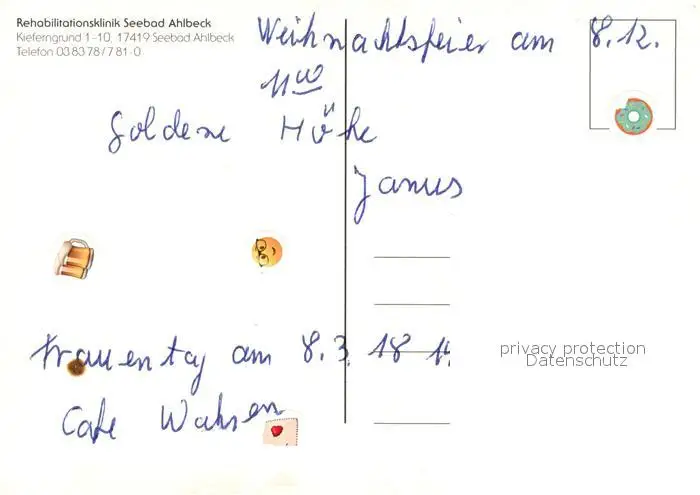 Rehabilitationsklinik Seebad Ahlbeck
Kieferngrund 1-10, 17419 Seebad Ahlbeck
Telefon 03 83 78 / 7 81-0
Weihnachtsfeier am 8.12.
11⁰⁰
Goldene Höhe
Janus
Frauentag am 8.3. 18 14
Cafe
privacy protection
Datenschutz